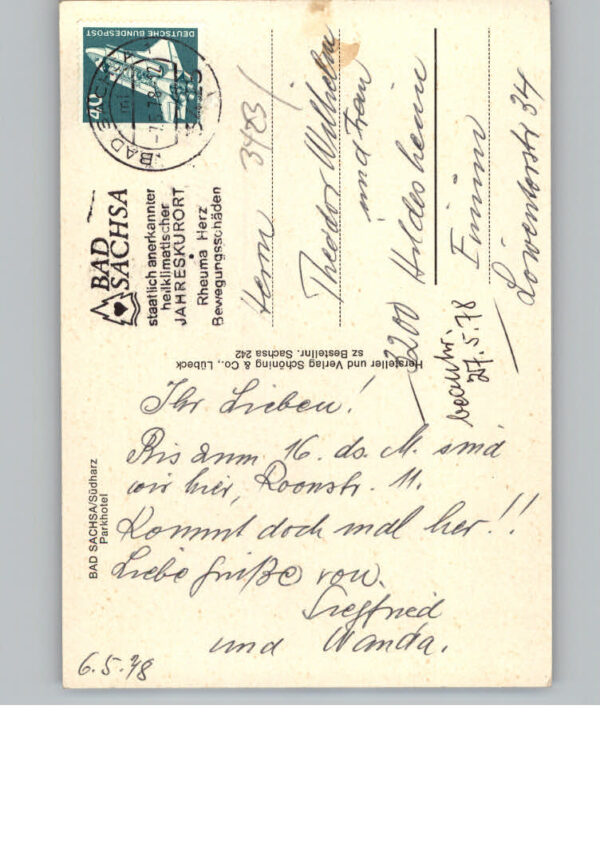 BAD SACHSA/Südharz
Parkhotel
Ihr Lieben!
Bis zum 16. ds. M. sind
wir hier, Roonstr. 11.
Kommt doch mal her!!
Liebe Grüße von
Siegfried
und Wanda.
6.5.78
Hersteller und Verlag Schöning & Co., Lübeck
sz Bestellnr. Sachsa 242
DEUTSCHE BUNDESPOST
40
BAD SACHSA
BAD
SACHSA
staatlich anerkannter
heilklimatischer
JAHRESKURORT
Rheuma Herz
Bewegungsschäden
Herrn
Theodor Wilhelm
und Frau
3200 Hildesheim
Löwentorstr 34
beantw.
27.5.78